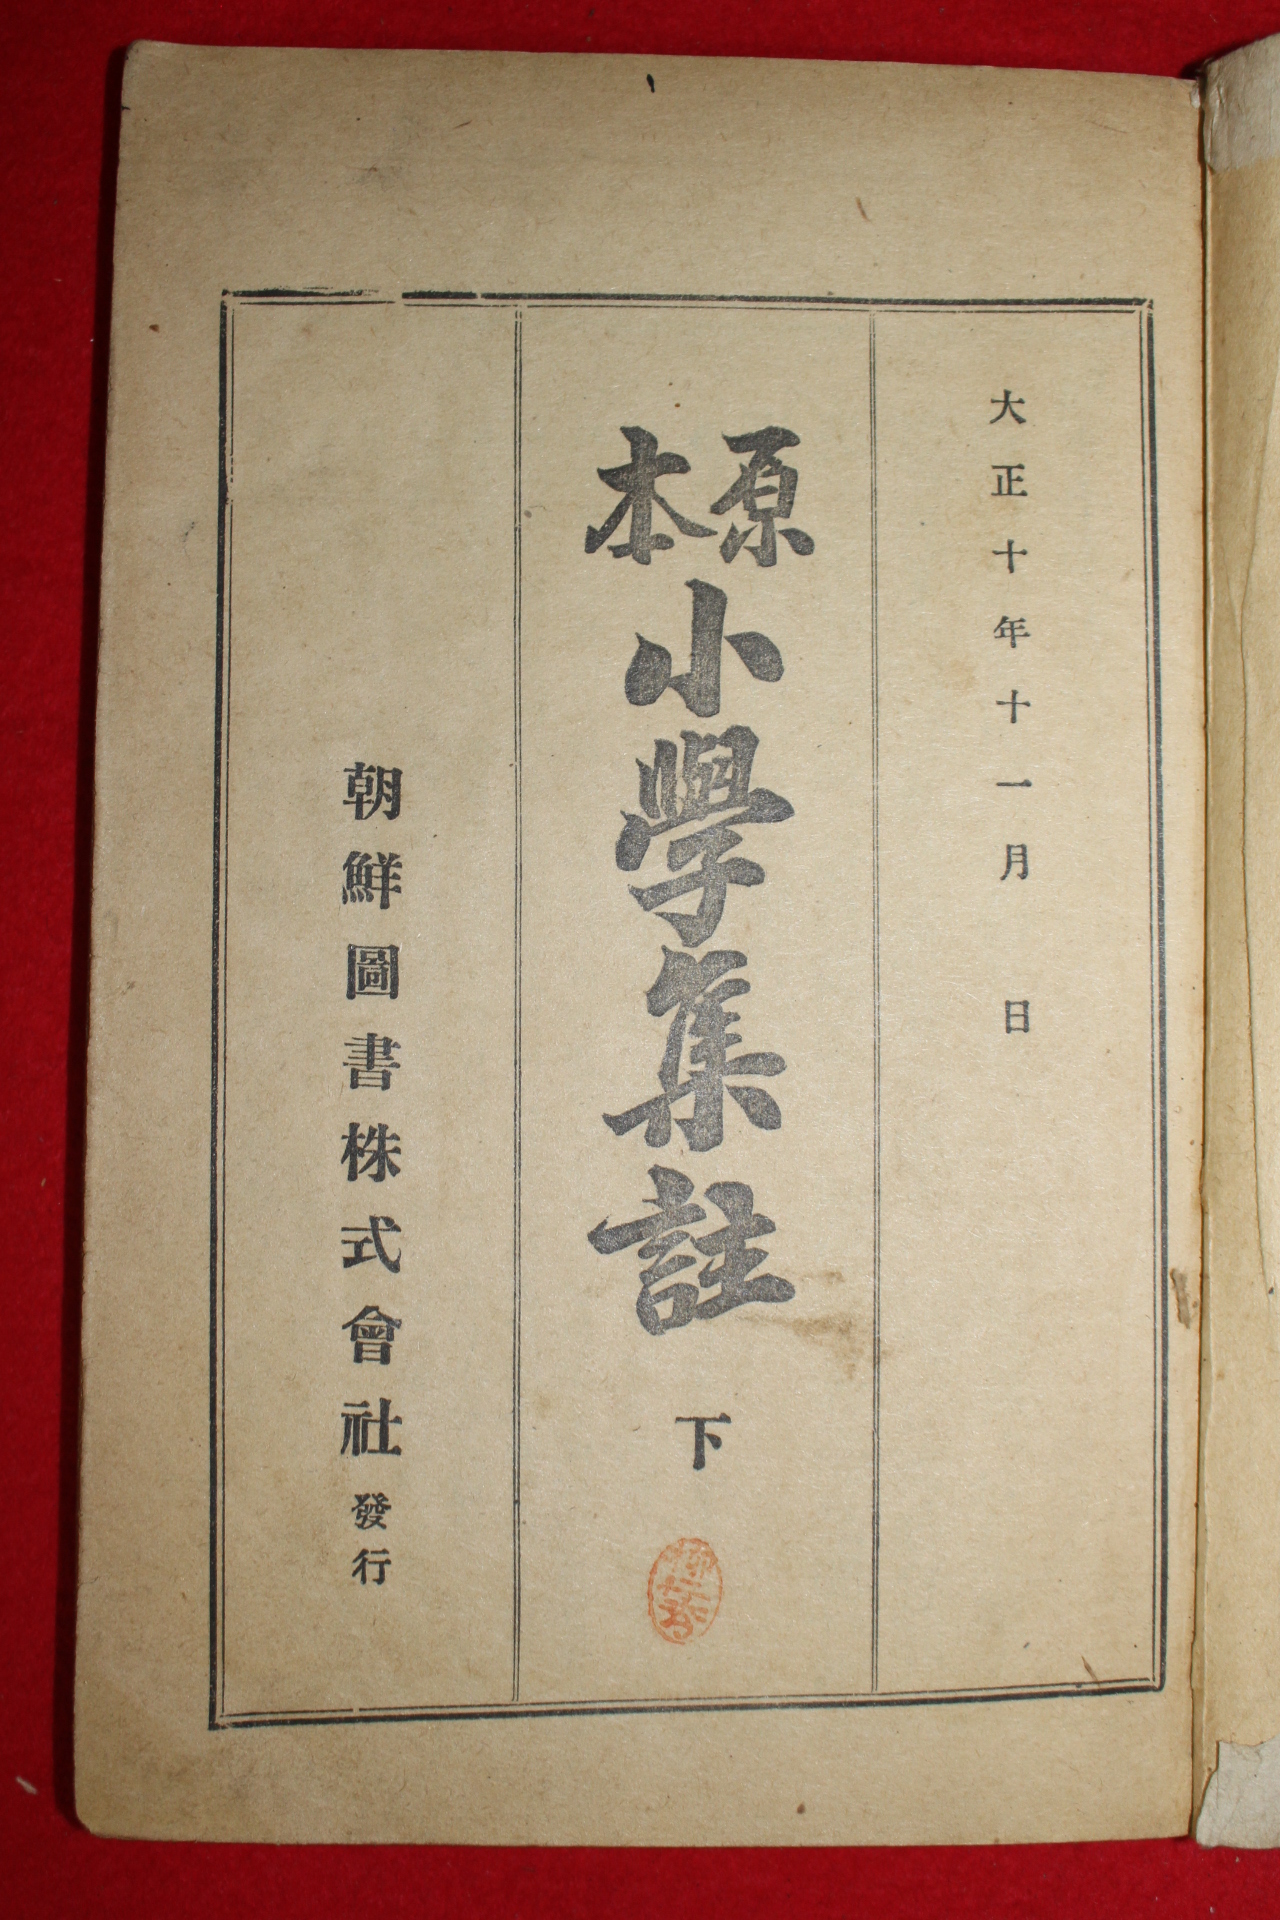 大正十年十一月　日
原本
小學集註　下
朝鮮圖書株式會社 發行